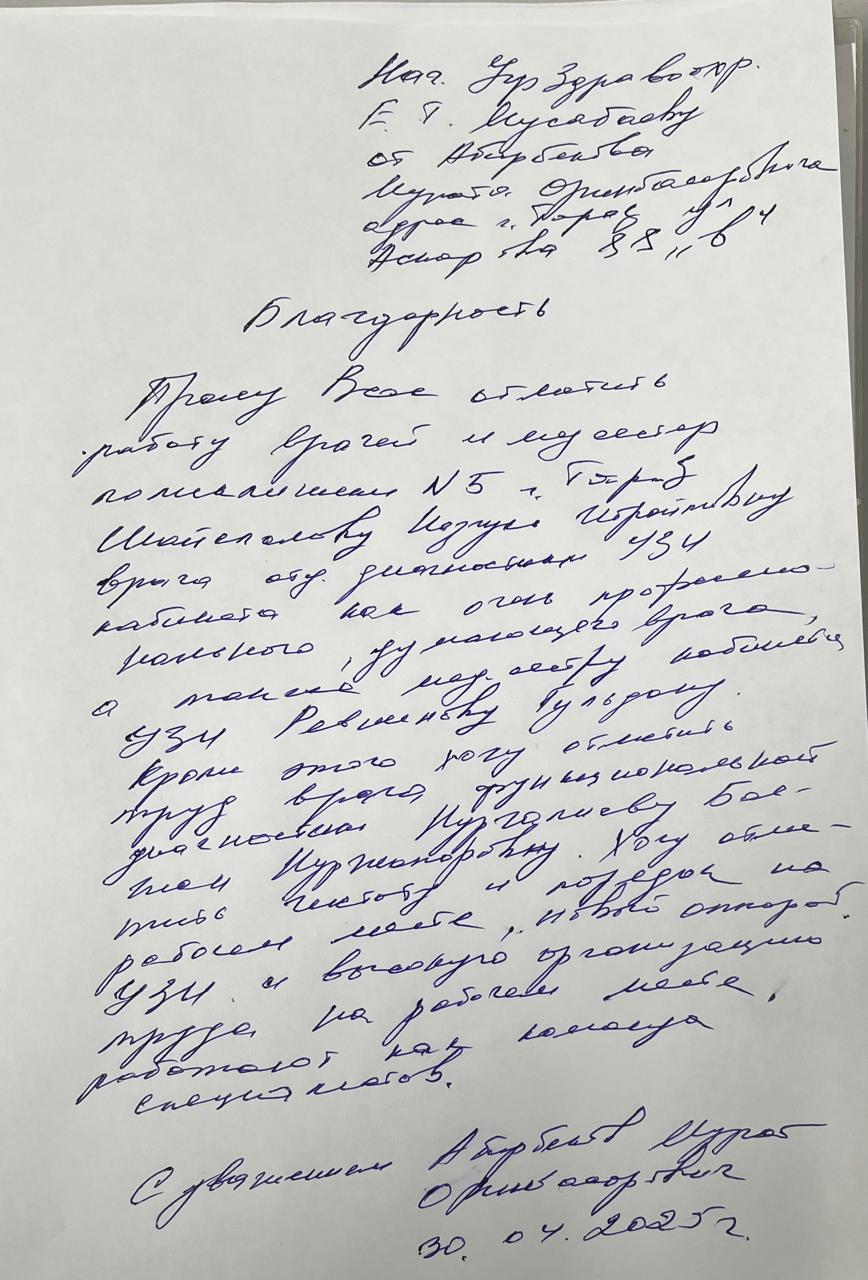 Нач. Упр Здравоохр.
Е. Т. Мусабаеву
от Абирбекова
Мурата Оринбасаровича
адрес г. Тараз ул
Аскарова 88 „в"
Благодарность
Прошу Вас отметить
работу врачей и медсестер
поликлиники N5 г. Тараз
врача отд. диагностики УЗИ
кабинета как очень професио-
нального, думающего врача,
а также мед. сестру кабинета
УЗИ Гульдану.
Кроме этого хочу отметить
труд врача функциональной
диагностики Нургалиеву Бак-
Нуржапаровну. Хочу отме-
тить чистоту и порядок на
рабочем месте, новый аппарат
УЗИ и высокую организацию
труда на рабочем месте,
работают как команда
специалистов.
С уважением Абирбеков Мурат
Оринбасарович
30. 04. 2025г.